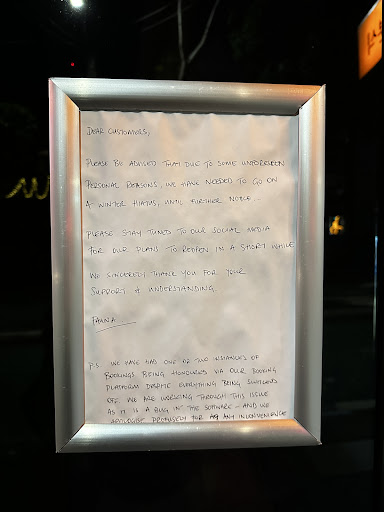 DEAR CUSTOMERS,
PLEASE BE ADVISED THAT DUE TO SOME UNFORESEEN
PERSONAL REASONS, WE HAVE NEEDED TO GO ON
A WINTER HIATUS, UNTIL FURTHER NOTICE...
PLEASE STAY TUNED TO OUR SOCIAL MEDIA
FOR OUR PLANS TO REOPEN IN A SHORT WHILE
WE SINCERELY THANK YOU FOR YOUR
SUPPORT & UNDERSTANDING
P.S. WE HAVE HAD ONE OR TWO INSTANCES OF
BOOKINGS BEING HONOURED VIA OUR BOOKING
PLATFORM DESPITE EVERYTHING BEING SWITCHED
OFF. WE ARE WORKING THROUGH THIS ISSUE
AS IT IS A BUG IN THE SOFTWARE - AND WE
APOLOGISE PROFUSELY FOR ANY INCONVENIENCE